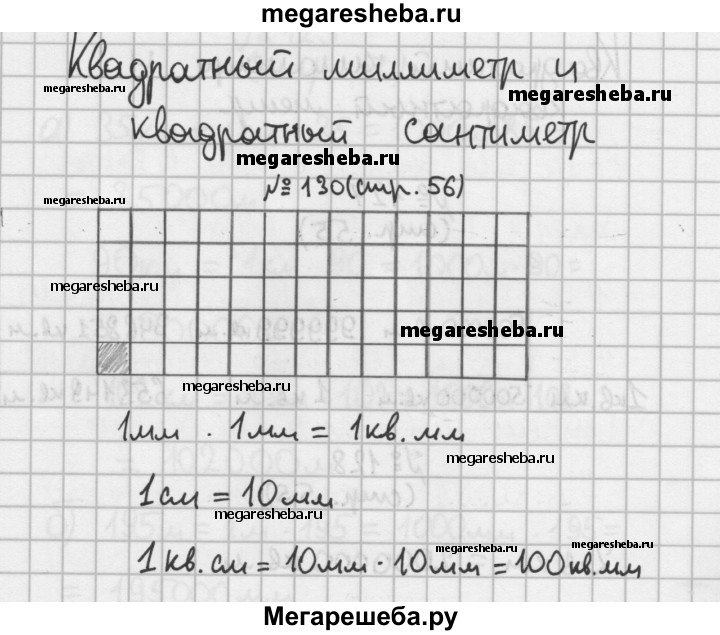 megaresheba.ru
Квадратный миллиметр и
megaresheba.ru
megaresheba.ru
квадратный сантиметр
megaresheba.ru
№ 130 (стр. 56)
megaresheba.ru
megaresheba.ru
megaresheba.ru
megaresheba.ru
1мм · 1мм = 1кв. мм
megaresheba.ru
1см = 10мм
megaresheba.ru
megaresheba.ru
megaresheba.ru
1кв. см = 10мм · 10мм = 100кв. мм
Мегарешеба.ру